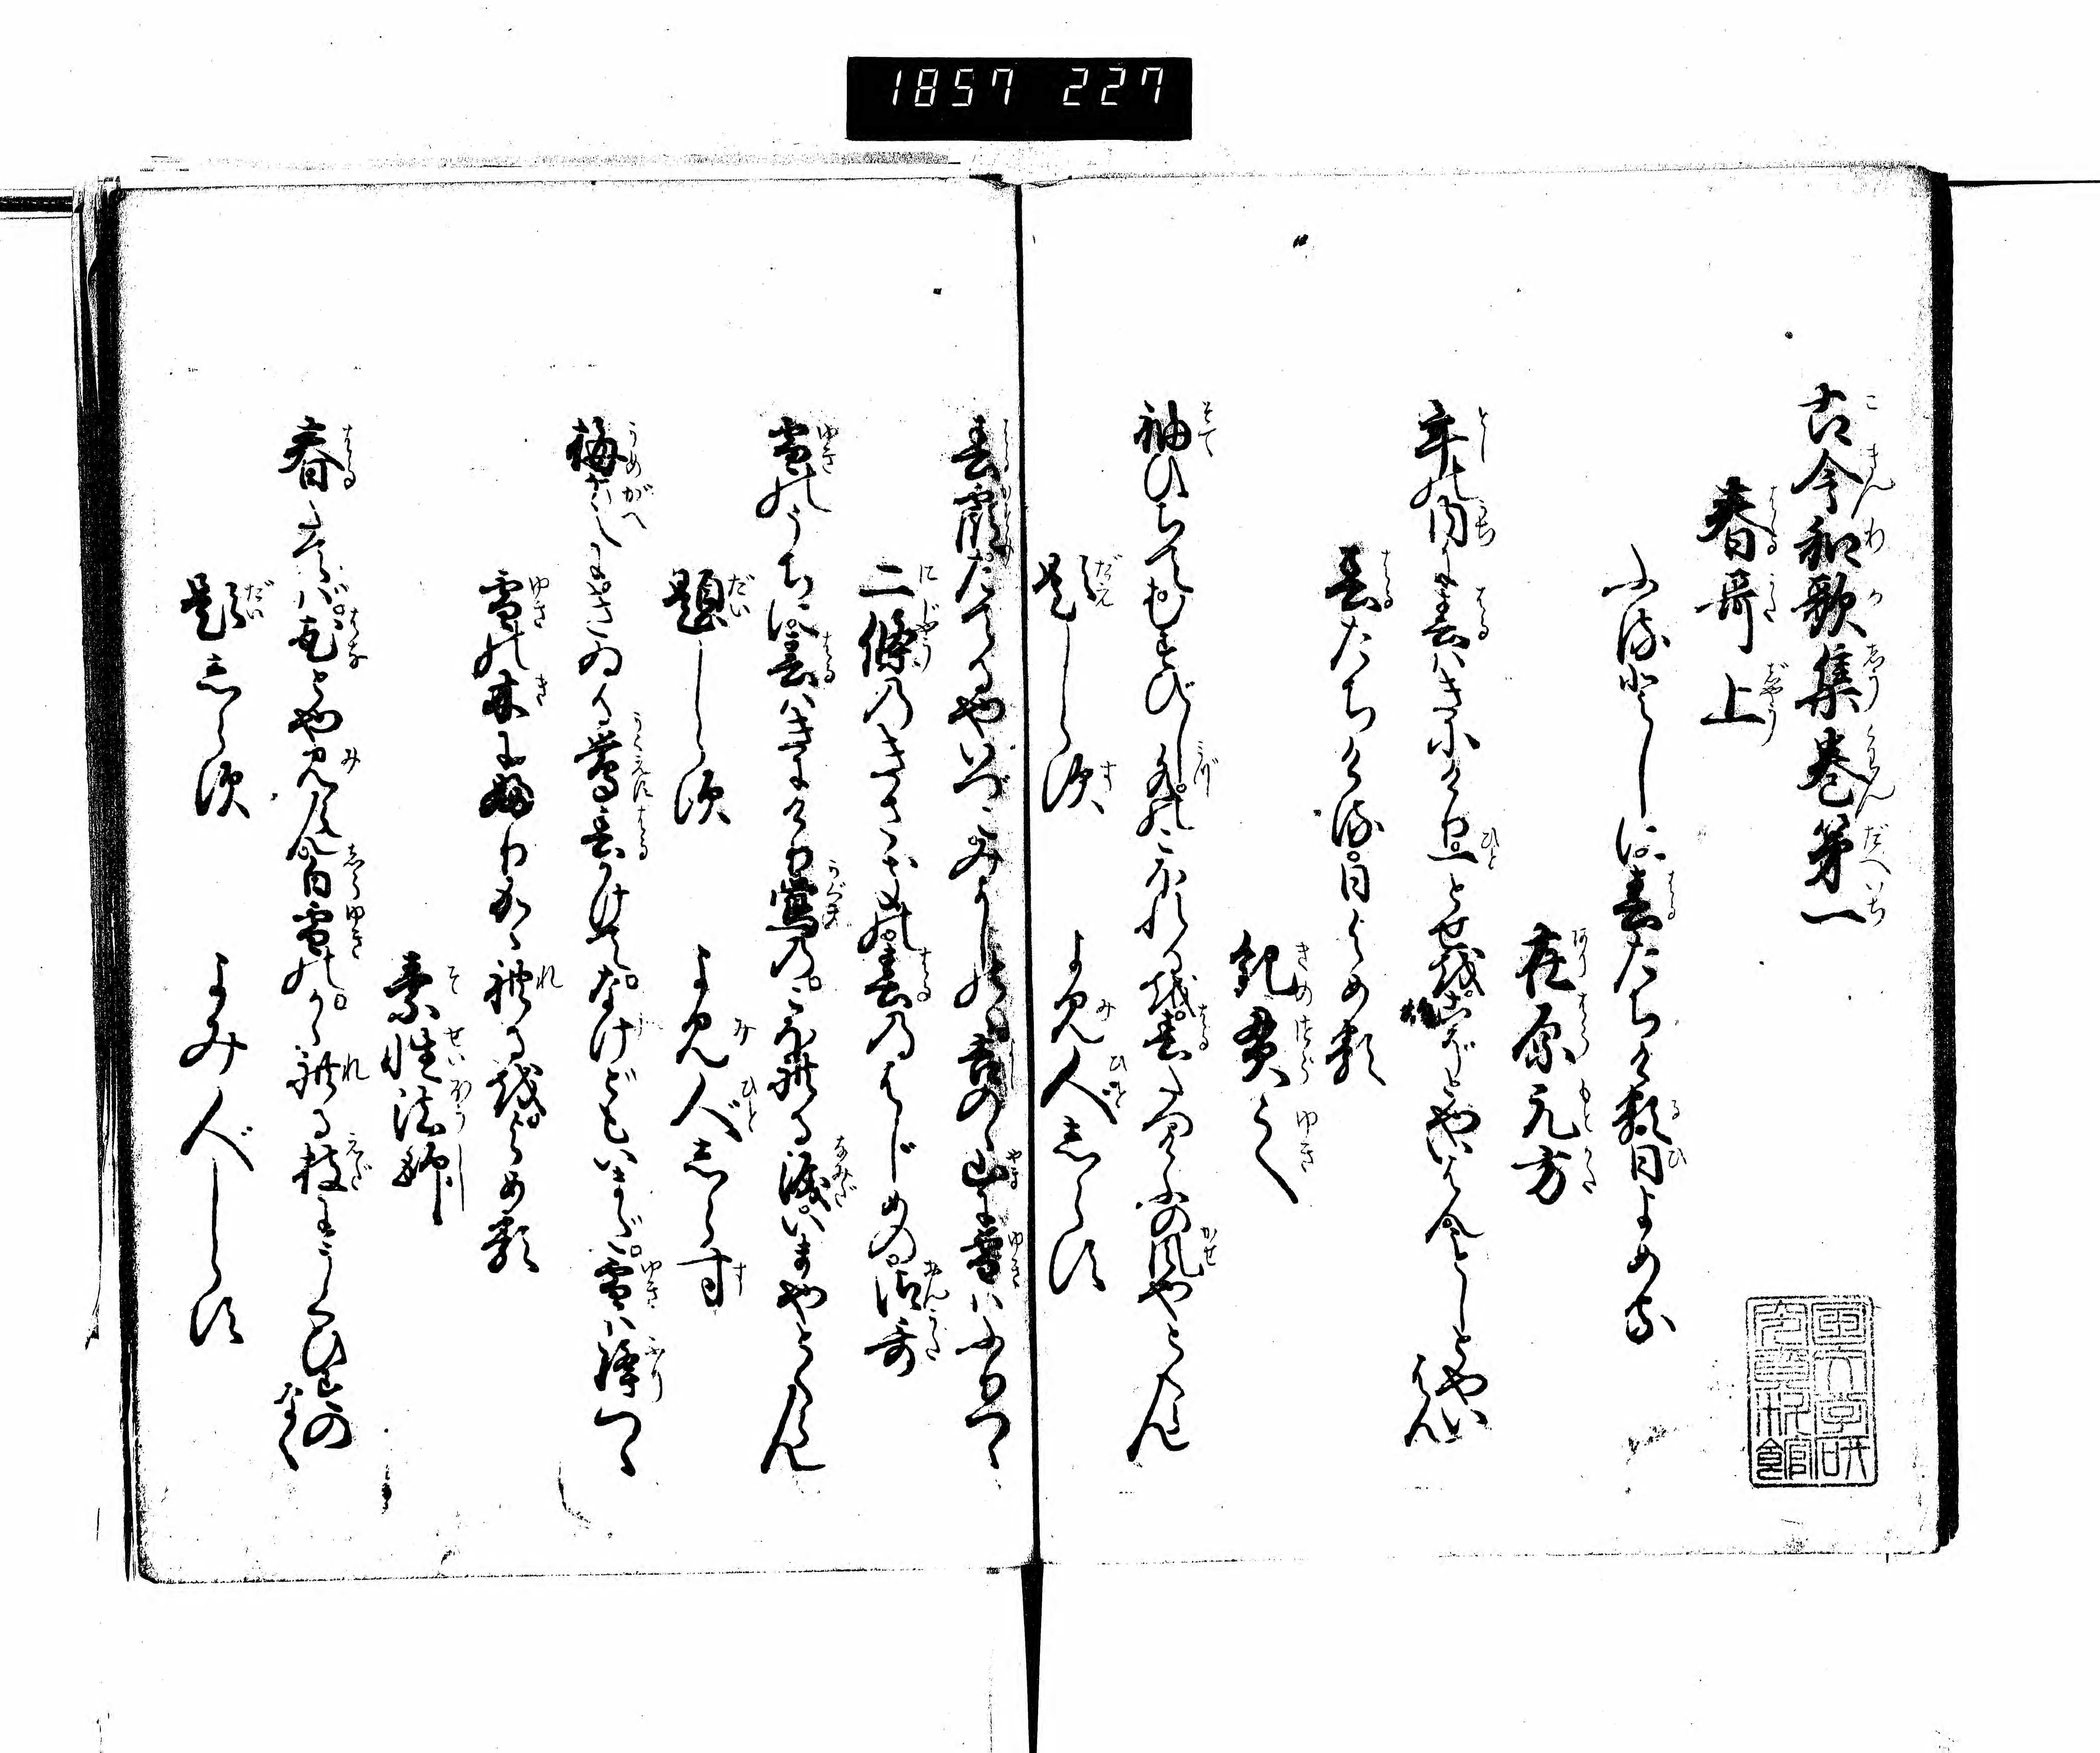 1857 227
古今和歌集巻第一
春哥上
ふるとしに春たちける日よめる
在原元方
年の内に春はきにけり一とせをこぞとやいはんことしとやいはん
春たちける日よめる
紀貫之
袖ひちてむすびし水のこほれるを春たつけふの風やとくらん
題しらず
よみ人しらず
春霞たてるやいづこみよしのゝ吉のゝ山に雪はふりつゝ
二條のきさきの春のはじめの御哥
雪のうちに春はきにけり鶯のこほれる涙いまやとくらん
題しらず
よみ人しらず
梅がえにきゐる鶯春かけてなけどもいまだ雪は降つゝ
雪の木にふりかゝれるをよめる
素性法師
春たてば花とや見らん白雪のかゝれる枝にうぐひすのなく
題しらず
よみ人しらず